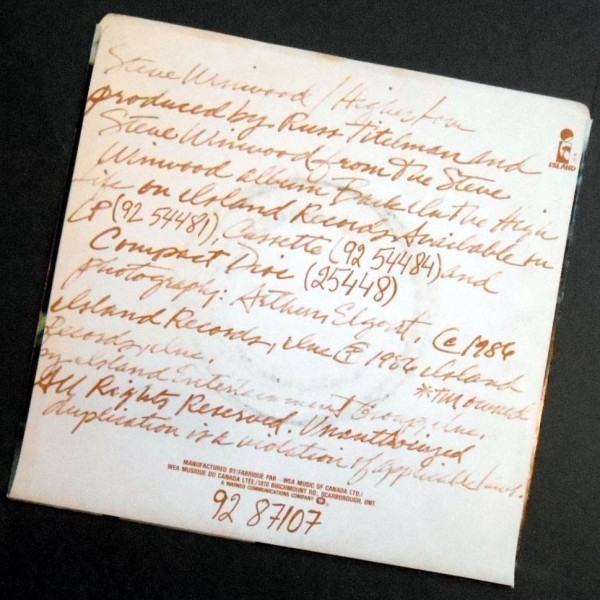 Steve Winwood / Higher Love
produced by Russ Titelman and
Steve Winwood from the Steve
Winwood album Back In The High
Life on Island Records Available on
LP (92 54481), Cassette (92 54484) and
Compact Disc (25448)
photography: Arthur Elgort. © 1986
Island Records, Inc ℗ 1986 Island
Records, Inc. *TM owned
by Island Entertainment Group, Inc.
All Rights Reserved. Unauthorized
duplication is a violation of applicable laws.
ISLAND
MANUFACTURED BY/FABRIQUÉ PAR - WEA MUSIC OF CANADA LTD./
WEA MUSIQUE DU CANADA LTEE./1810 BIRCHMOUNT RD., SCARBOROUGH, ONT.
A WARNER COMMUNICATIONS COMPANY
92 87107